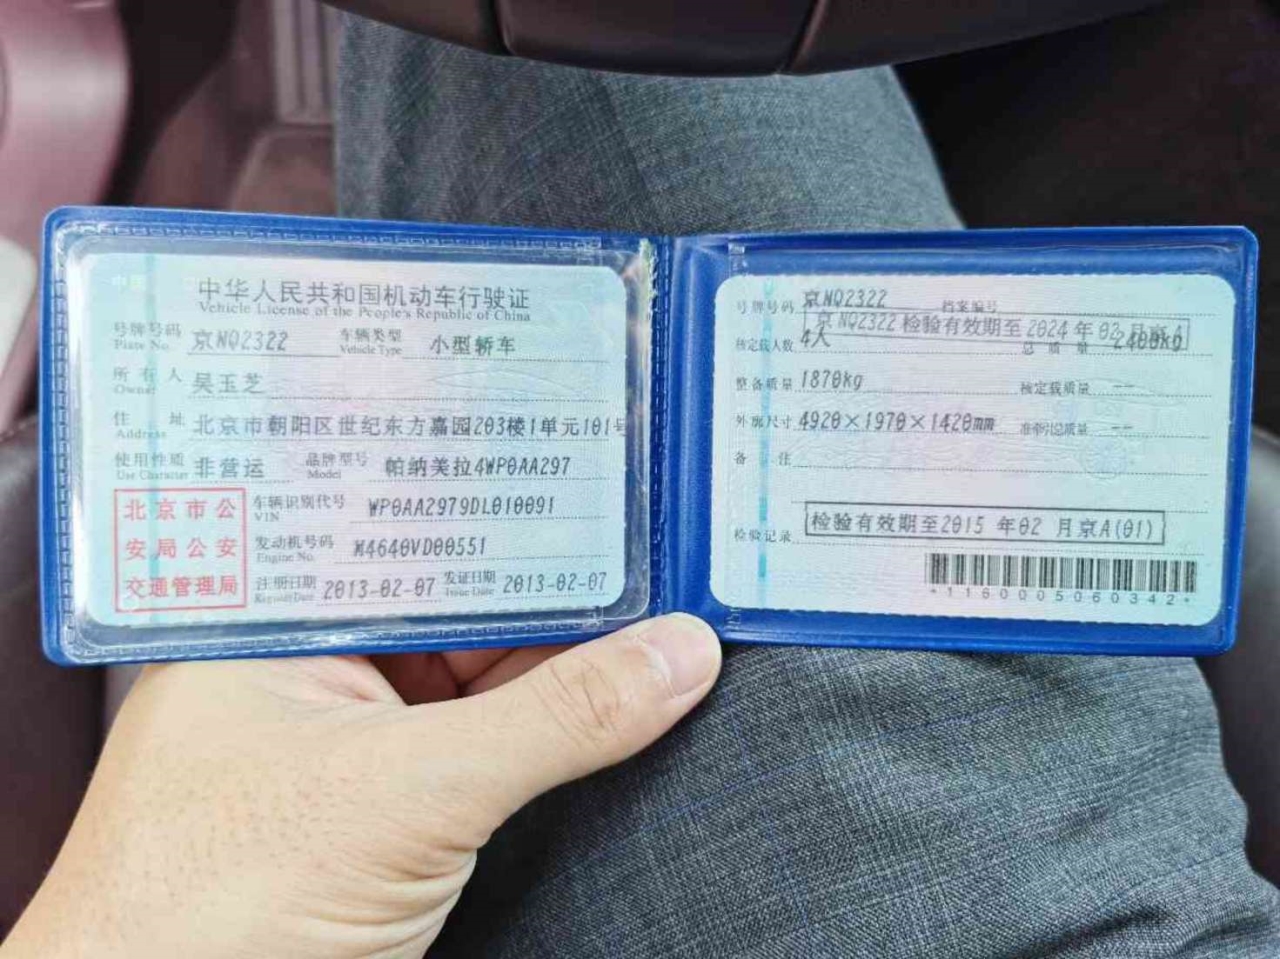 中华人民共和国机动车行驶证
Vehicle License of the People's Republic of China
号牌号码 京NQ2322 车辆类型 小型轿车
Plate No. Vehicle Type
所有人 吴玉芝
Owner
住址 北京市朝阳区世纪东方嘉园203楼1单元101号
Address
使用性质 非营运 品牌型号 帕纳美拉4WP0AA297
Use Character Model
北京市公安局公安交通管理局
车辆识别代号 WP0AA2979DL010091
VIN
发动机号码 M4640VD00551
Engine No.
注册日期 2013-02-07 发证日期 2013-02-07
Register Date Issue Date
号牌号码 京NQ2322 档案编号
京NQ2322 检验有效期至2024年02月京A
核定载人数 4人 总质量 2400kg
整备质量 1870kg 核定载质量 --
外廓尺寸 4920×1970×1420mm 准牵引总质量 --
备注
检验记录 检验有效期至2015年02月京A(01)
+1160005060342+